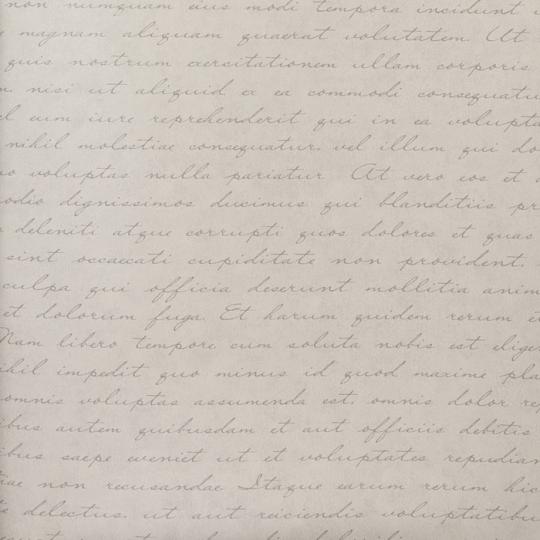 non numquam eius modi tempora incidunt
magnam aliquam quaerat volutatem. Ut
quis nostrum exercitationem ullam corporis
nisi ut aliquid ex ea commodi consequatu
eum iure reprehenderit qui in ea volupta
nihil molestiae consequatur. vel illum qui do
voluptas nulla pariatur At vero eos et
odio dignissimos ducimus qui blanditiis pr
deleniti atque corrupti quos dolores et quas
sint occaecati cupiditate non provident.
culpa qui officia deserunt mollitia anim
et dolorum fuga. Et harum quidem rerum et
Nam libero tempore cum soluta nobis est elige
ihil impedit quo minus id quod maxime pla
omnis voluptas assumenda est. omnis dolor rep
ibus autem quibusdam et aut officiis debitis
ibus saepe eveniet ut et voluptates repudian
iae non recusandae Itaque earum rerum hic
delectus. ut aut reiciendis voluptatibu